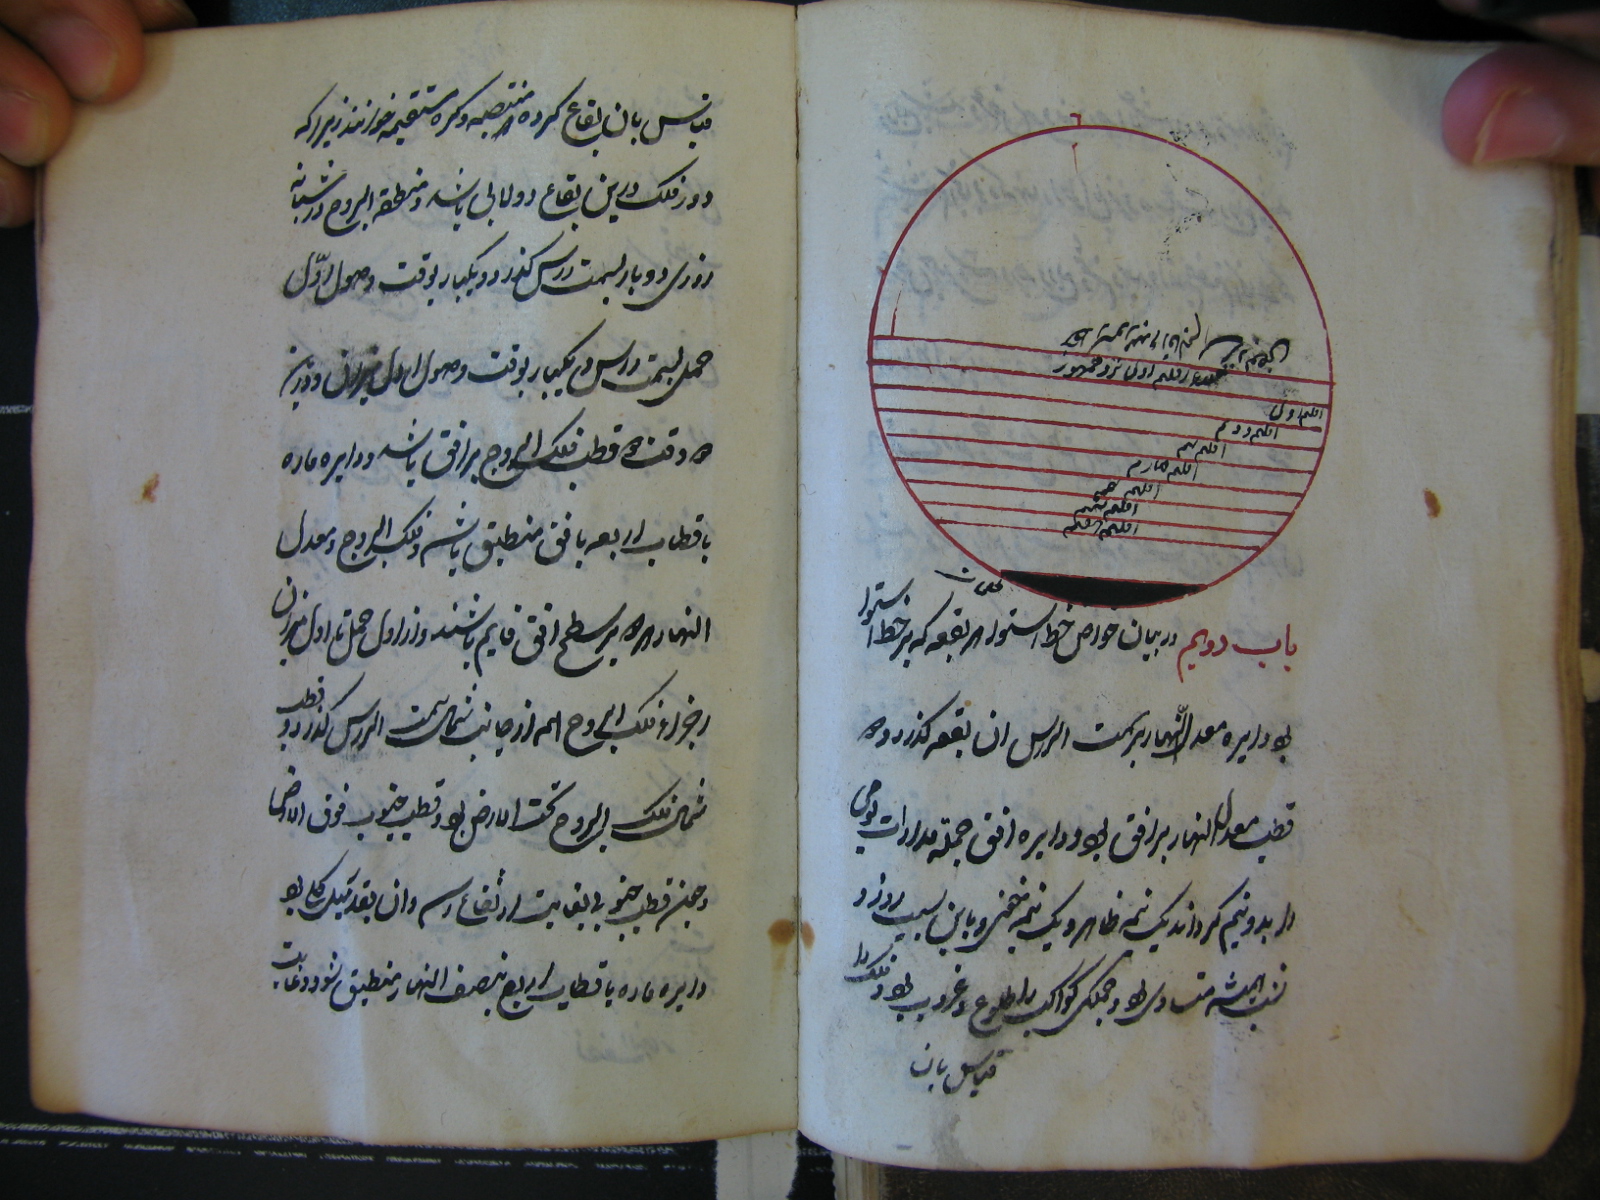 اقلیم اول
اقلیم دویم
اقلیم سیم
اقلیم چهارم
اقلیم پنجم
اقلیم ششم
اقلیم هفتم
باب دویم در بیان خواص خط استوا هر بقعه که بر خط استوا
بود دایره معدل النهار بر سمت الراس ان بقعه کذرد و
قطب معدل النهار بر افق بود و دایره افق جمله مدارات یومی
را بدو نیم کرداند یک نیمه ظاهر و یک نیمه مخفی و باین سبب روز و
شب همیشه متساوی بود و جملکی کواکب را طلوع و غروب بود و فلک را
قیاس بان
قیاس بان بقاع کره منتصبه و کره مستقیمه خوانند زیرا که
دور فلک درین بقاع دولابی باشد و منطقة البروج در شبانه
روزی دو بار بسمت راس کذرد و یکبار بوقت وصول اول
حمل بسمت راس و یکبار بوقت وصول اول میزان و درین
دو وقت قطب فلک البروج بر افق باشد و دایره ماره
باقطاب اربعه بافق منطبق باشد و فلک البروج و معدل
النهار بر سطح افق قایم باشند و از اول حمل تا اول میزان
اجزاء فلک البروج از جانب شمال سمت الراس کذرد و قطب
شمالی فلک البروج تحت الارض بود و قطب جنوب فوق الارض
و چون قطب جنوبی بغایت ارتفاع رسد و ان بقدر میل کلی بود
دایره ماره باقطاب اربع بنصف النهار منطبق شود و غایت